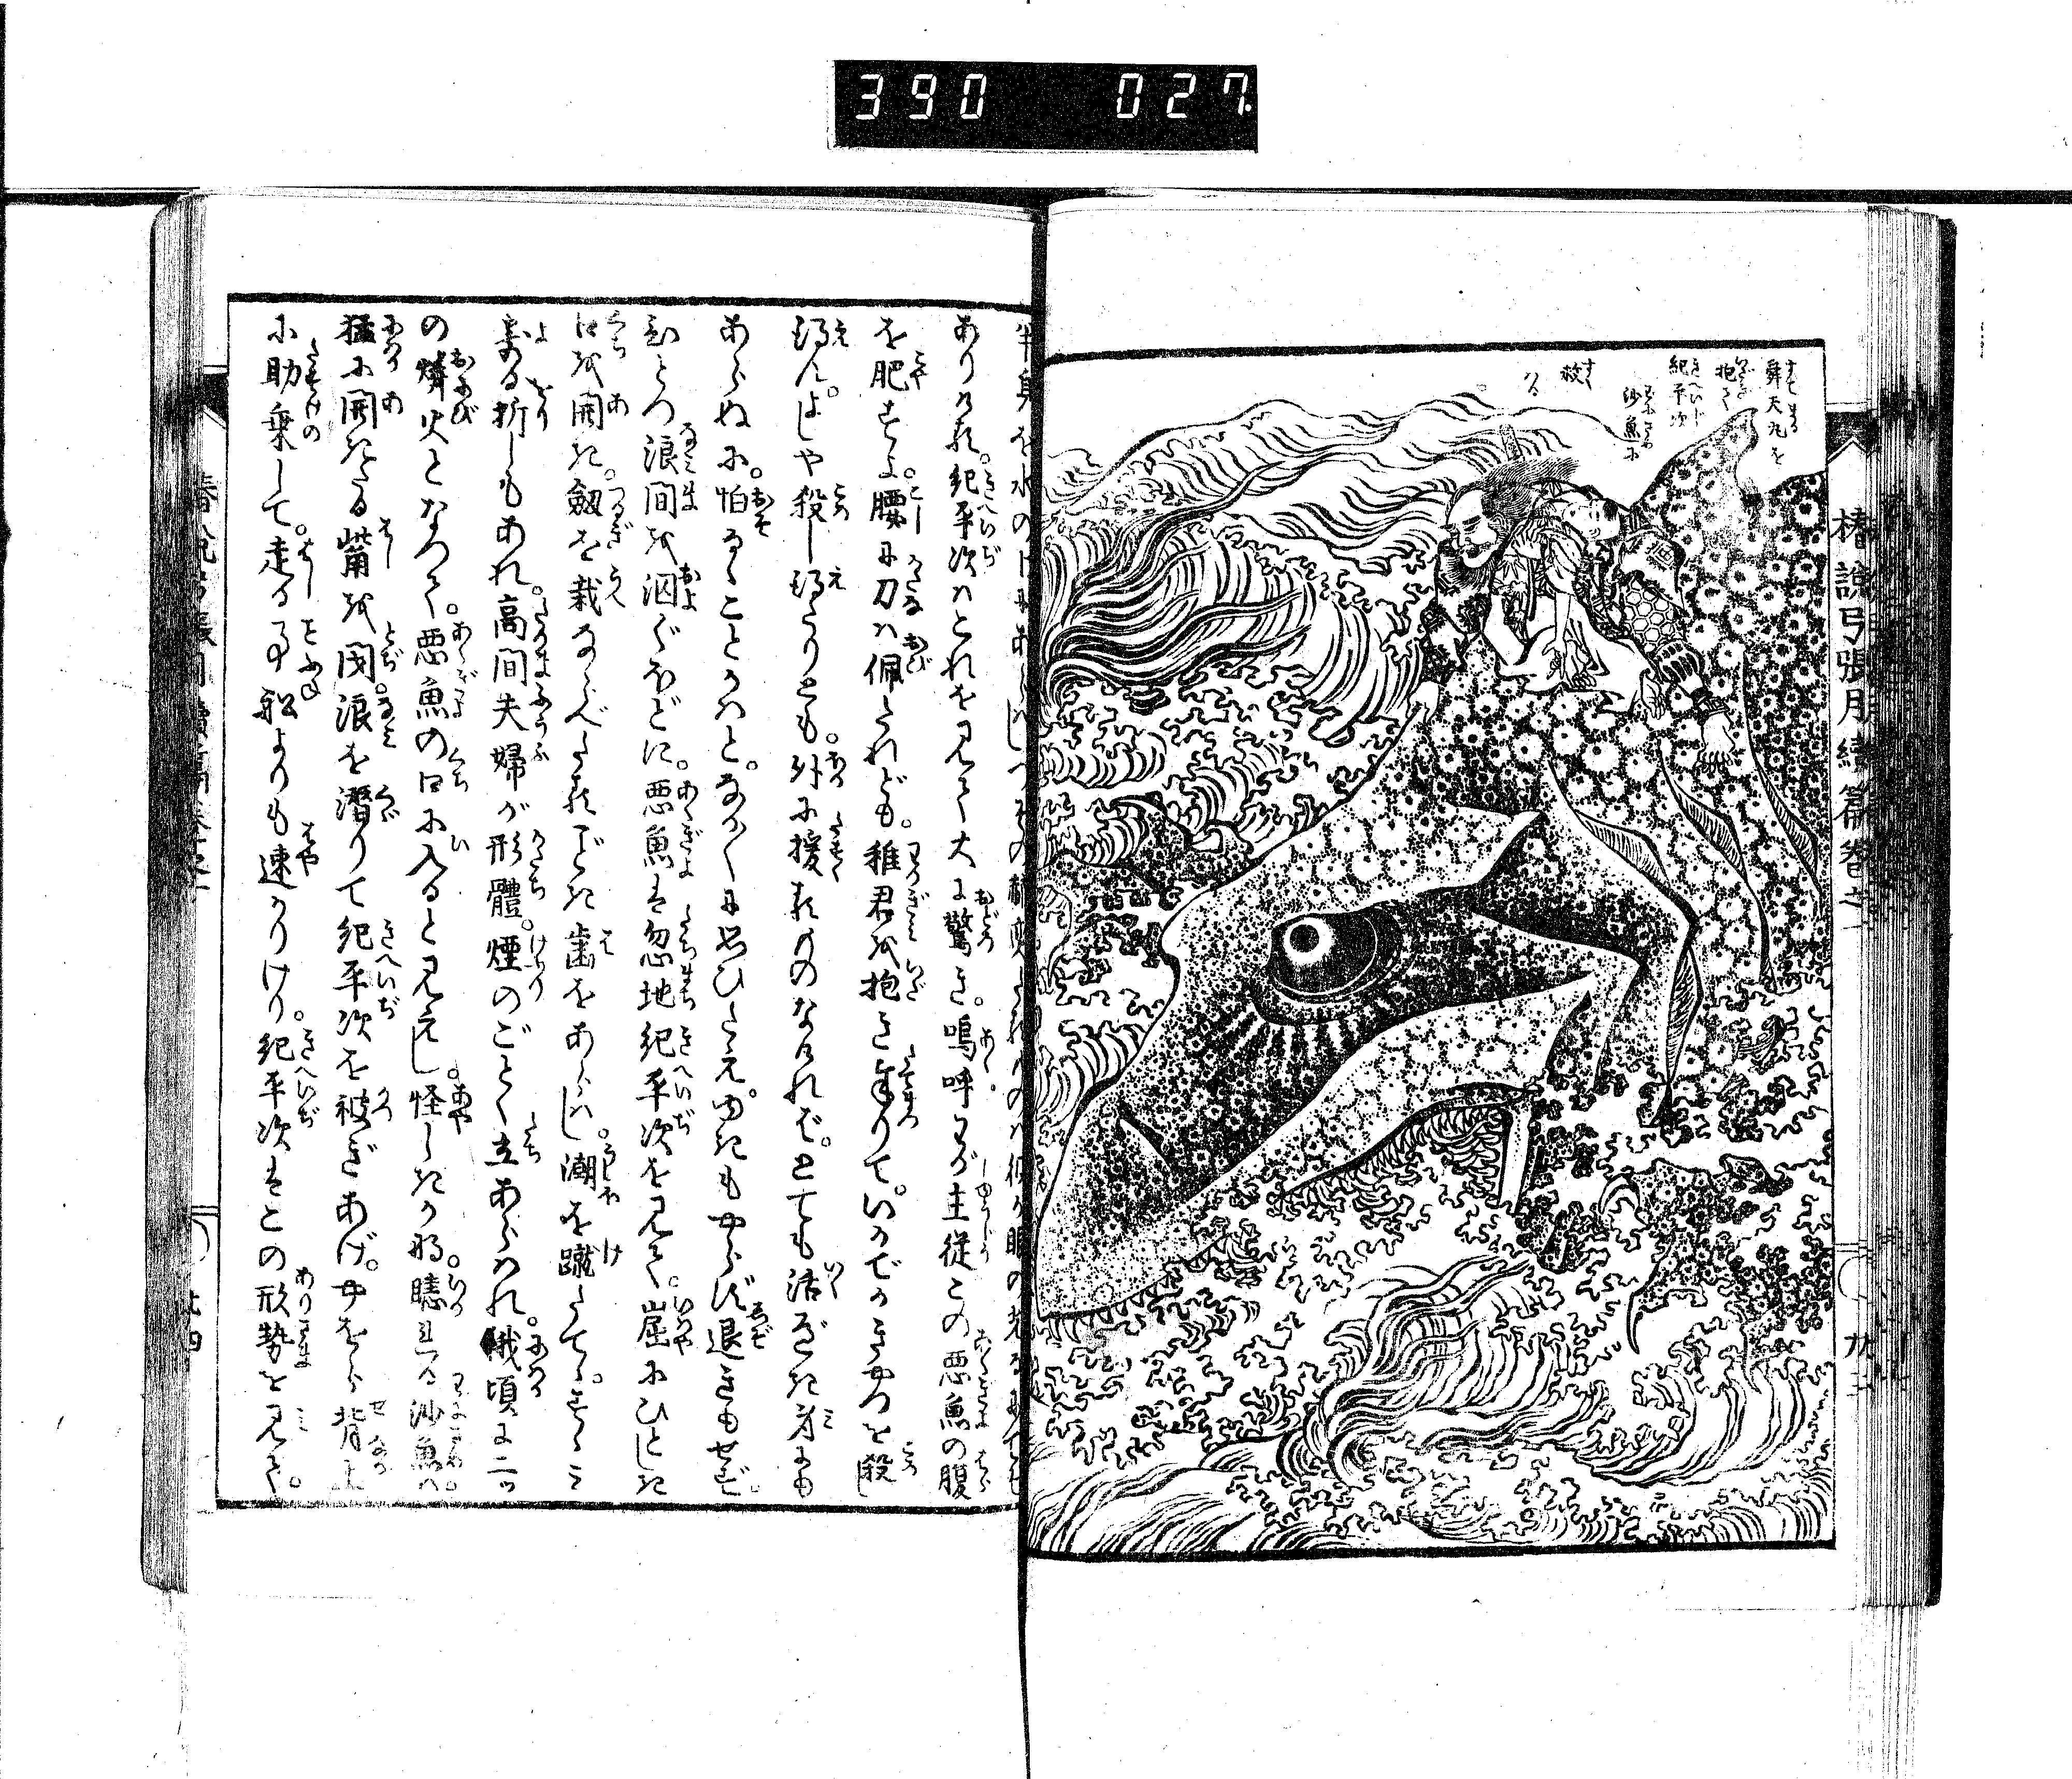 390 027
舜天丸を
抱きて
紀平次
沙魚に
救はる
椿説弓張月續篇巻之
半身を水の上にあらはしつその
ありける。紀平次はこれを見て大に驚き。嗚呼わが主従この悪魚の腹
を肥さんよ。腰に刀は佩たれども。稚君を抱きまゐりて。いかでかきやつを殺し
得ん。よしや殺し得たりとも。外に援るものなければ。とても活べき身にも
あらぬに。怕るゝことかはと。なか〳〵に思ひたえ。ゆきもやらず退きもせず。
ひとつ浪間を泅ぐほどに。悪魚は忽地紀平次を見て。崫にひとしき
口を開き。劔を栽ならべたるごとき歯をあらはし。潮を蹴たてゝ。すゝみ
寄る折しもあれ。高間夫婦が形體。煙のごとく立あらはれ。俄頃に二ッ
の燐火となつて。悪魚の口に入ると見えし。怪しきかな。忿れる沙魚は。
猛に開きたる觜を閉。浪を潜りて紀平次を被ぎあげ。やをら背上
に助乗して。走る事舩よりも速かりけり。紀平次はこの形勢を見て。